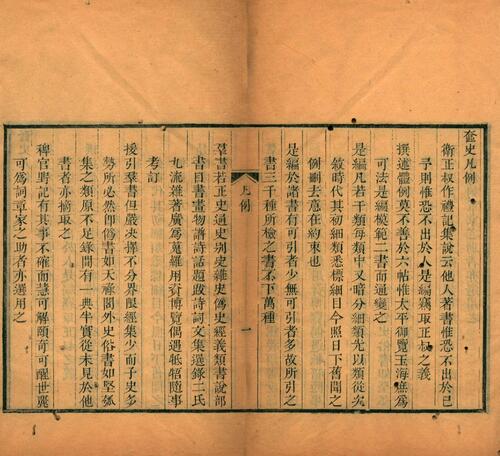 奩史凡例
衛正叔作禮記集說云他人著書惟恐不出於已
予則惟恐不出於人是編竊取正叔之義
撰述體例莫不善於六帖惟太平御覽玉海庶爲
可法是編模範二書而通變之
是編凡若干類每類中又暗分細類先以類從次
敘時代其初細類悉標細目今照日下舊聞之
例刪去意在約束也
是編於諸書有可引者少無可引者多故所引之
書三千種所檢之書不下萬種
凡例
一
羣書若正史通史别史雜史僞史經義類書說部
書目書畫物譜詩話題跋詩詞文集選錄二氏
九流雜著廣爲蒐羅用資博覽偶遇牴牾隨事
考訂
援引羣書但嚴决擇不分界限經集少而子史多
勢所必然卽僞書如天祿閣外史俗書如堅瓠
集之類原不足錄間有一典半實從未見於他
書者亦摘取之
稗官野記有其事不確而慧可解頤奇可醒世裹
可爲詞章家之助者亦選用之